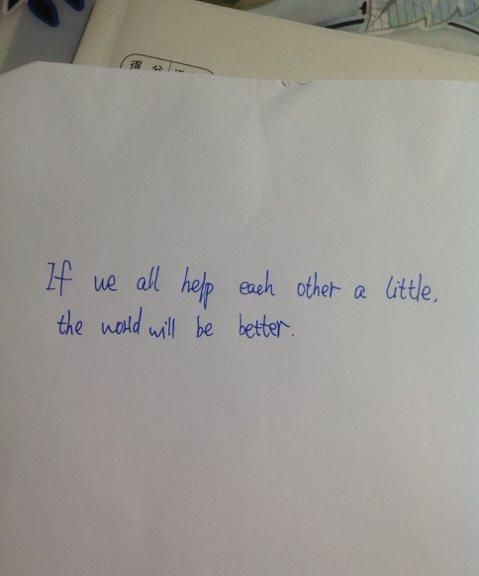 得分
If we all help each other a little,
the world will be better.